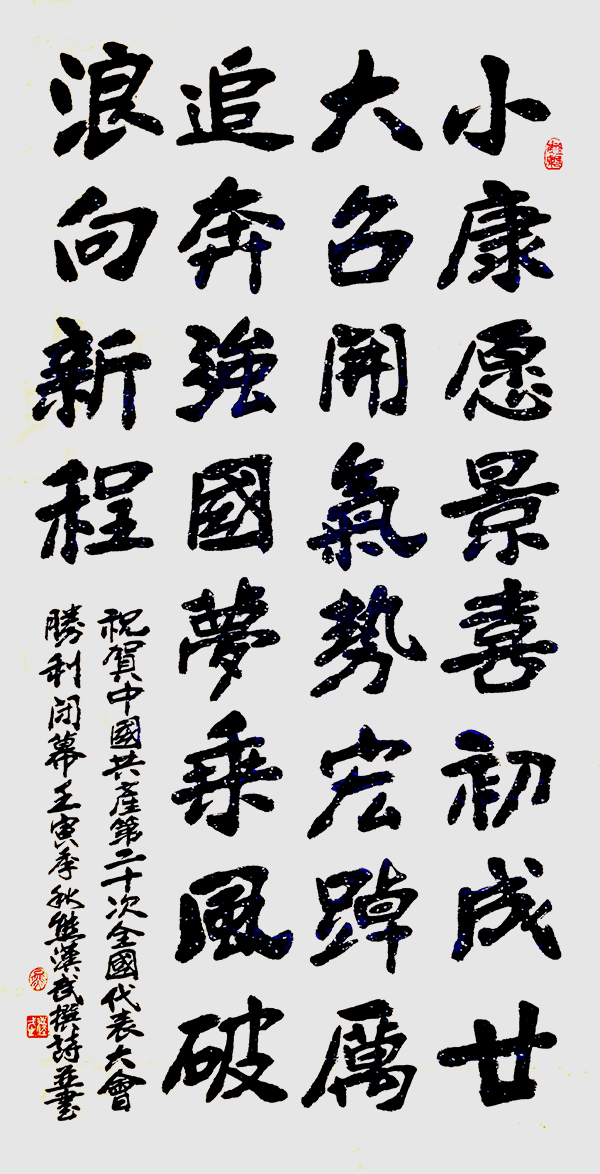 小康愿景喜初成廿
大召開氣勢宏踔厲
追奔強國夢乘風破
浪向新程
祝賀中國共產第二十次全國代表大會
勝利閉幕壬寅季秋熊漢武撰詩並書